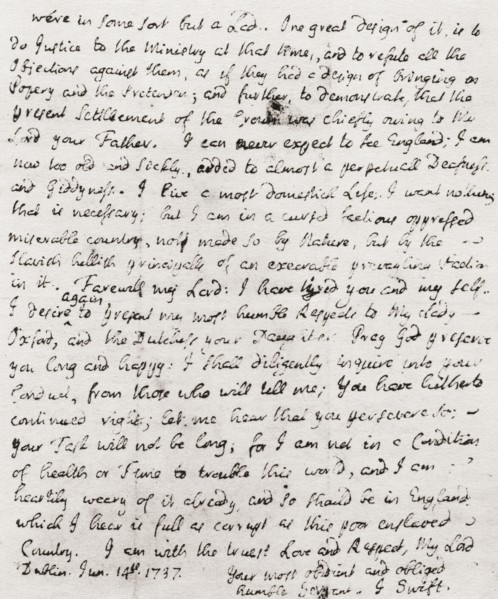 were in some sort but a Lad. One great design of it, is to
do Justice to the Ministry at that time, and to refute all the
Objections against them, as if they had a design of bringing in
Popery and the Pretender; and further to demonstrate, that the
present Settlement of the Crown was chiefly owing to My
Lord your Father. I can never expect to see England; I am
now too old and Sickly, added to almost a perpetuall Deafness
and Giddyness. I live a most domestick Life; I want nothing
that is necessary; but I am in a cursed factious oppressed
miserable country, not made so by Nature, but by the
Slavish hellish principalls of an execrable prevayling Faction
in it. Farewell my Lord: I have tyred you and my self.
I desire again, to present my most humble Respects to My Lady
Oxford, and the Dutchess your Daughter. Pray God preserve
you long and happy: I shall diligently inquire into your
Conduct, from those who will tell me; You have hitherto
continued right; let me hear that you persevere so;
your Task will not be long; for I am not in a Condition
of health or Time to trouble this world, and I am
heartily weary of it already, and so should be in England
which I hear is full as corrupt as this poor enslaved
Country. I am with the truest Love and Respect, My Lord
Dublin. Jun. 14th. 1737. Your most obedient and obliged
humble Servant. J Swift.